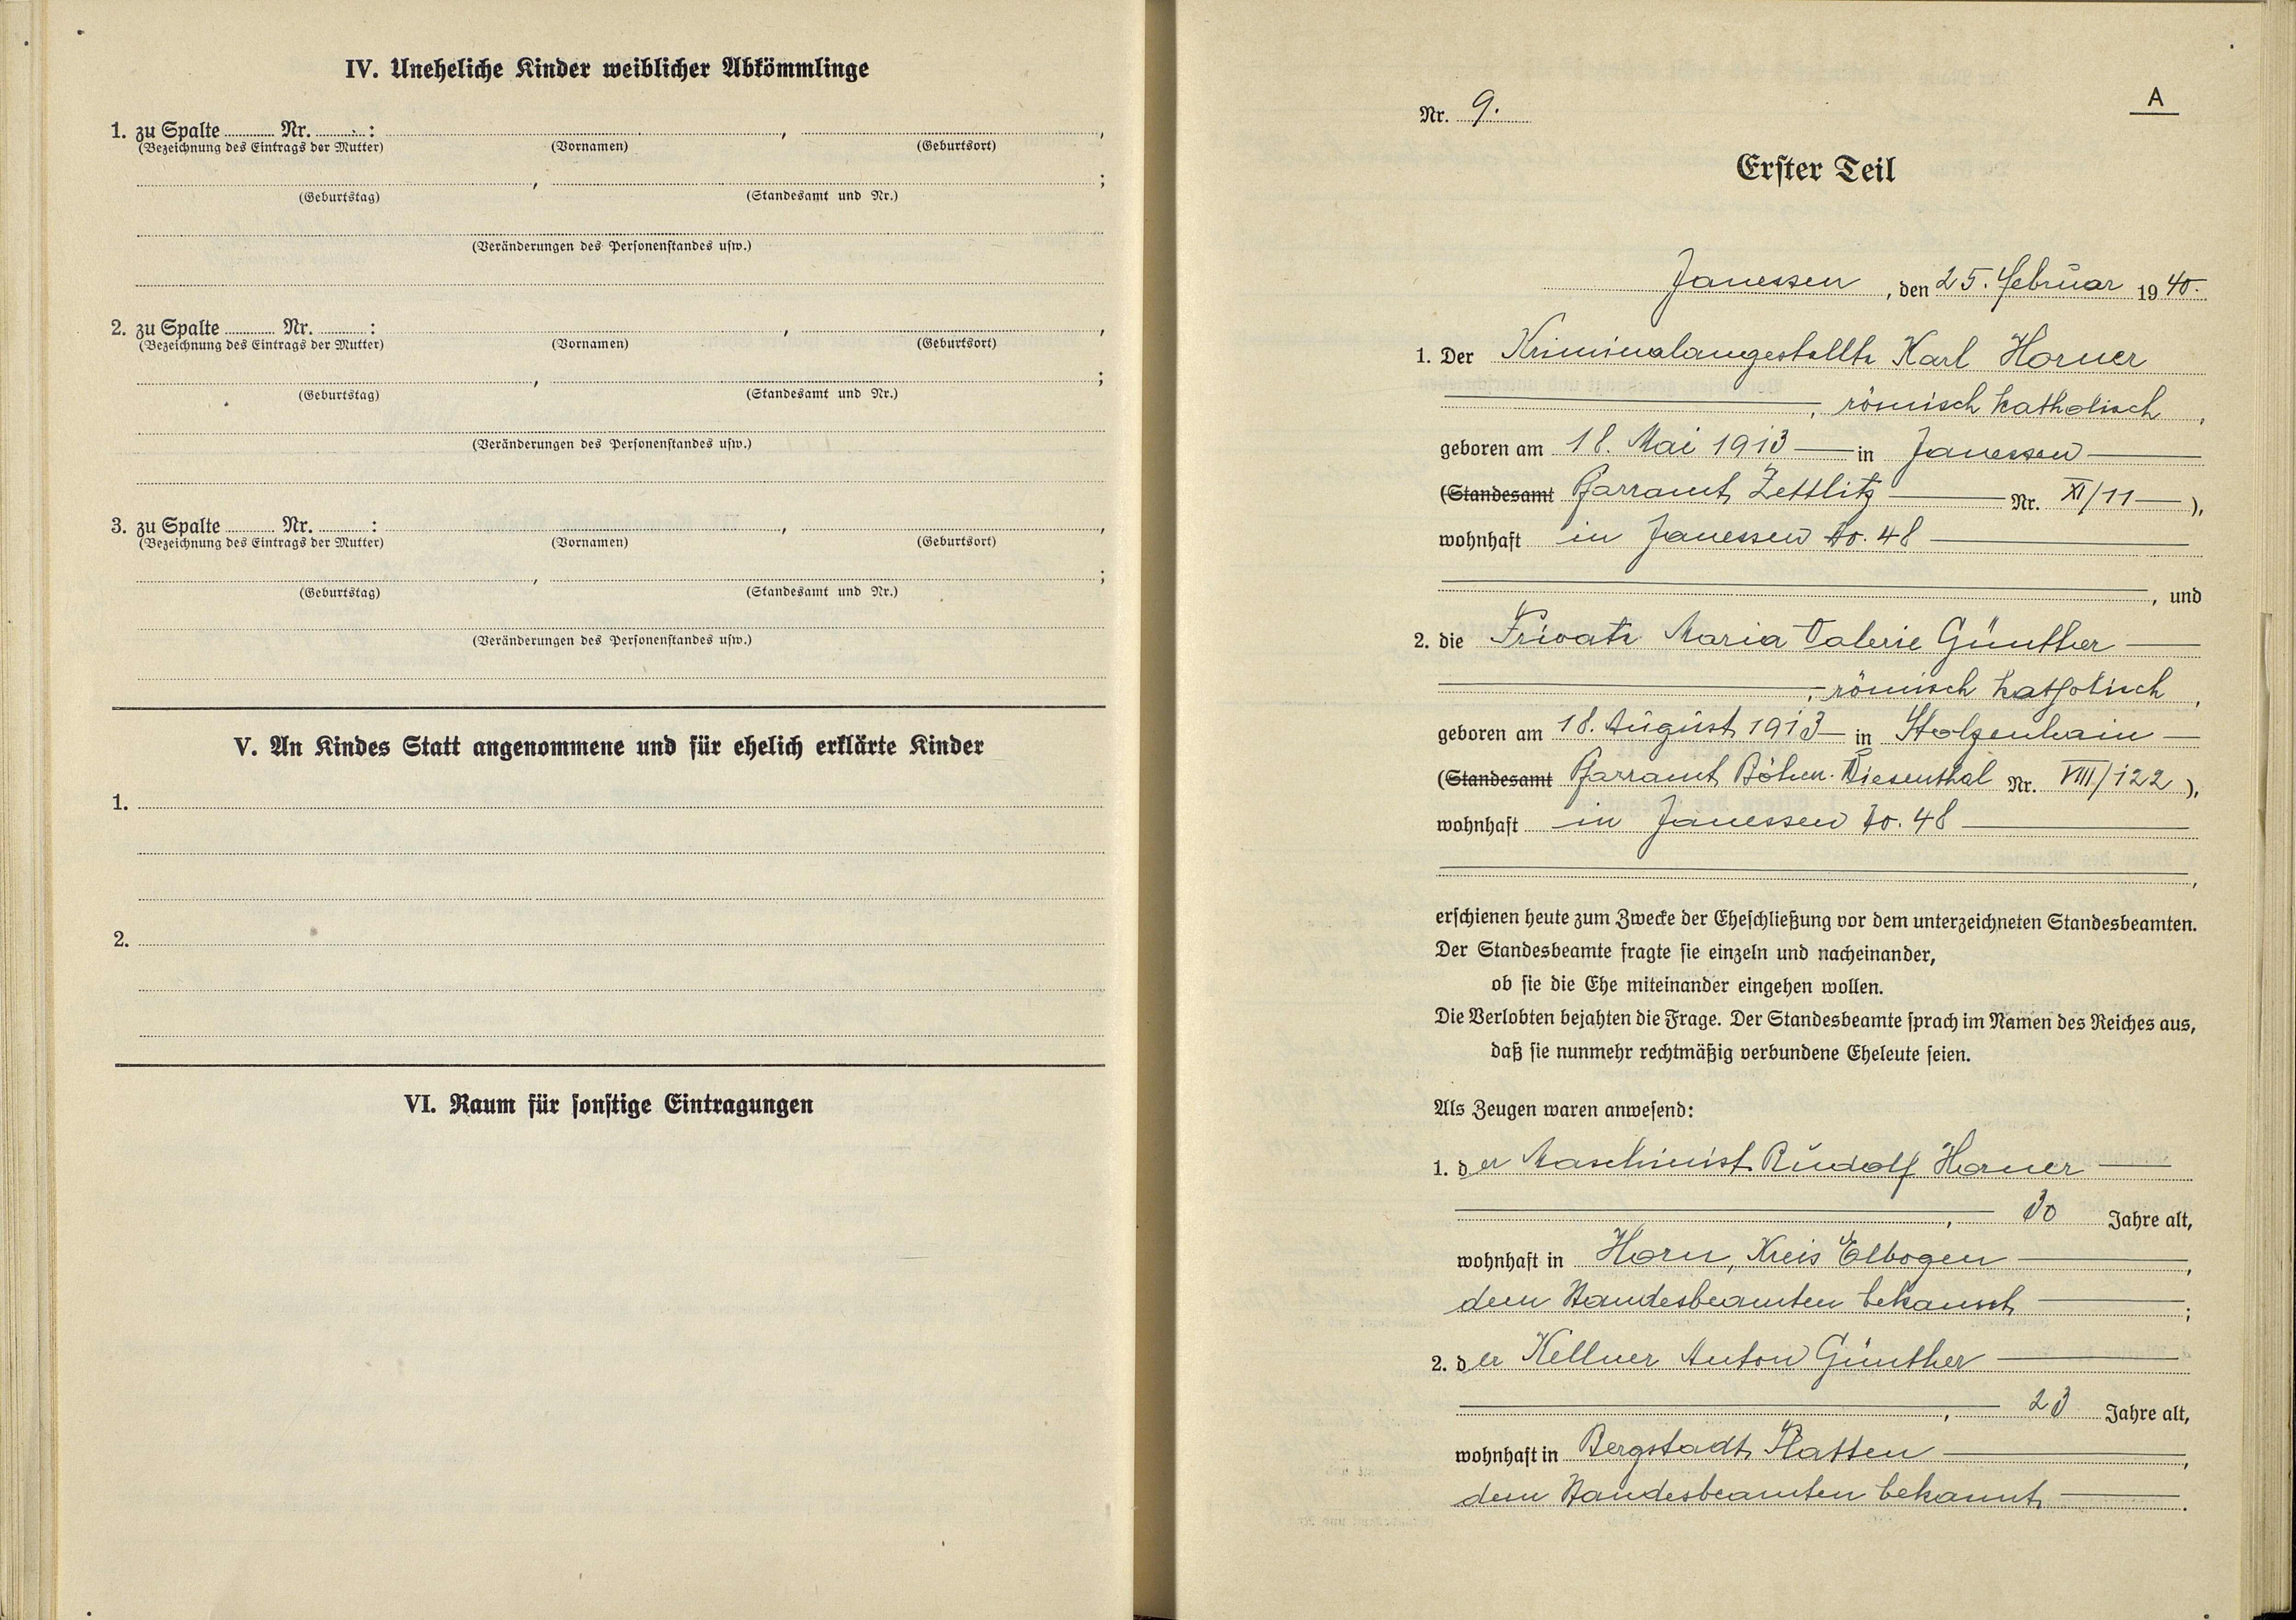 IV. Uneheliche Kinder weiblicher Abkömmlinge
1. zu Spalte ........ Nr. ........ : ........ , ........ ,
(Bezeichnung des Eintrags der Mutter) (Vornamen) (Geburtsort)
........ , ........ ;
(Geburtstag) (Standesamt und Nr.)
(Veränderungen des Personenstandes usw.)
2. zu Spalte ........ Nr. ........ : ........ , ........ ,
(Bezeichnung des Eintrags der Mutter) (Vornamen) (Geburtsort)
........ , ........ ;
(Geburtstag) (Standesamt und Nr.)
(Veränderungen des Personenstandes usw.)
3. zu Spalte ........ Nr. ........ : ........ , ........ ,
(Bezeichnung des Eintrags der Mutter) (Vornamen) (Geburtsort)
........ , ........ ;
(Geburtstag) (Standesamt und Nr.)
(Veränderungen des Personenstandes usw.)
V. An Kindes Statt angenommene und für ehelich erklärte Kinder
1.
2.
VI. Raum für sonstige Eintragungen
A
Nr. 9.
Erster Teil
Janessen, den 25. Februar 1940.
1. Der Kriminalangestellte Karl Horner
, römisch katholisch,
geboren am 18. Mai 1913 in Janessen
(Standesamt Pfarramt Zettlitz Nr. XI/11 ),
wohnhaft in Janessen No. 48
, und
2. die Private Maria Valerie Günther
, römisch katholisch,
geboren am 18. August 1913 in Stolzenhain
(Standesamt Pfarramt Böhm. Wiesenthal Nr. VIII/122 ),
wohnhaft in Janessen No. 48
,
erschienen heute zum Zwecke der Eheschließung vor dem unterzeichneten Standesbeamten.
Der Standesbeamte fragte sie einzeln und nacheinander,
ob sie die Ehe miteinander eingehen wollen.
Die Verlobten bejahten die Frage. Der Standesbeamte sprach im Namen des Reiches aus,
daß sie nunmehr rechtmäßig verbundene Eheleute seien.
Als Zeugen waren anwesend:
1. der Maschinist Rudolf Horner
, 30 Jahre alt,
wohnhaft in Horn, Kreis Elbogen,
dem Standesbeamten bekannt;
2. der Kellner Anton Günther
, 23 Jahre alt,
wohnhaft in Bergstadt Platten,
dem Standesbeamten bekannt.